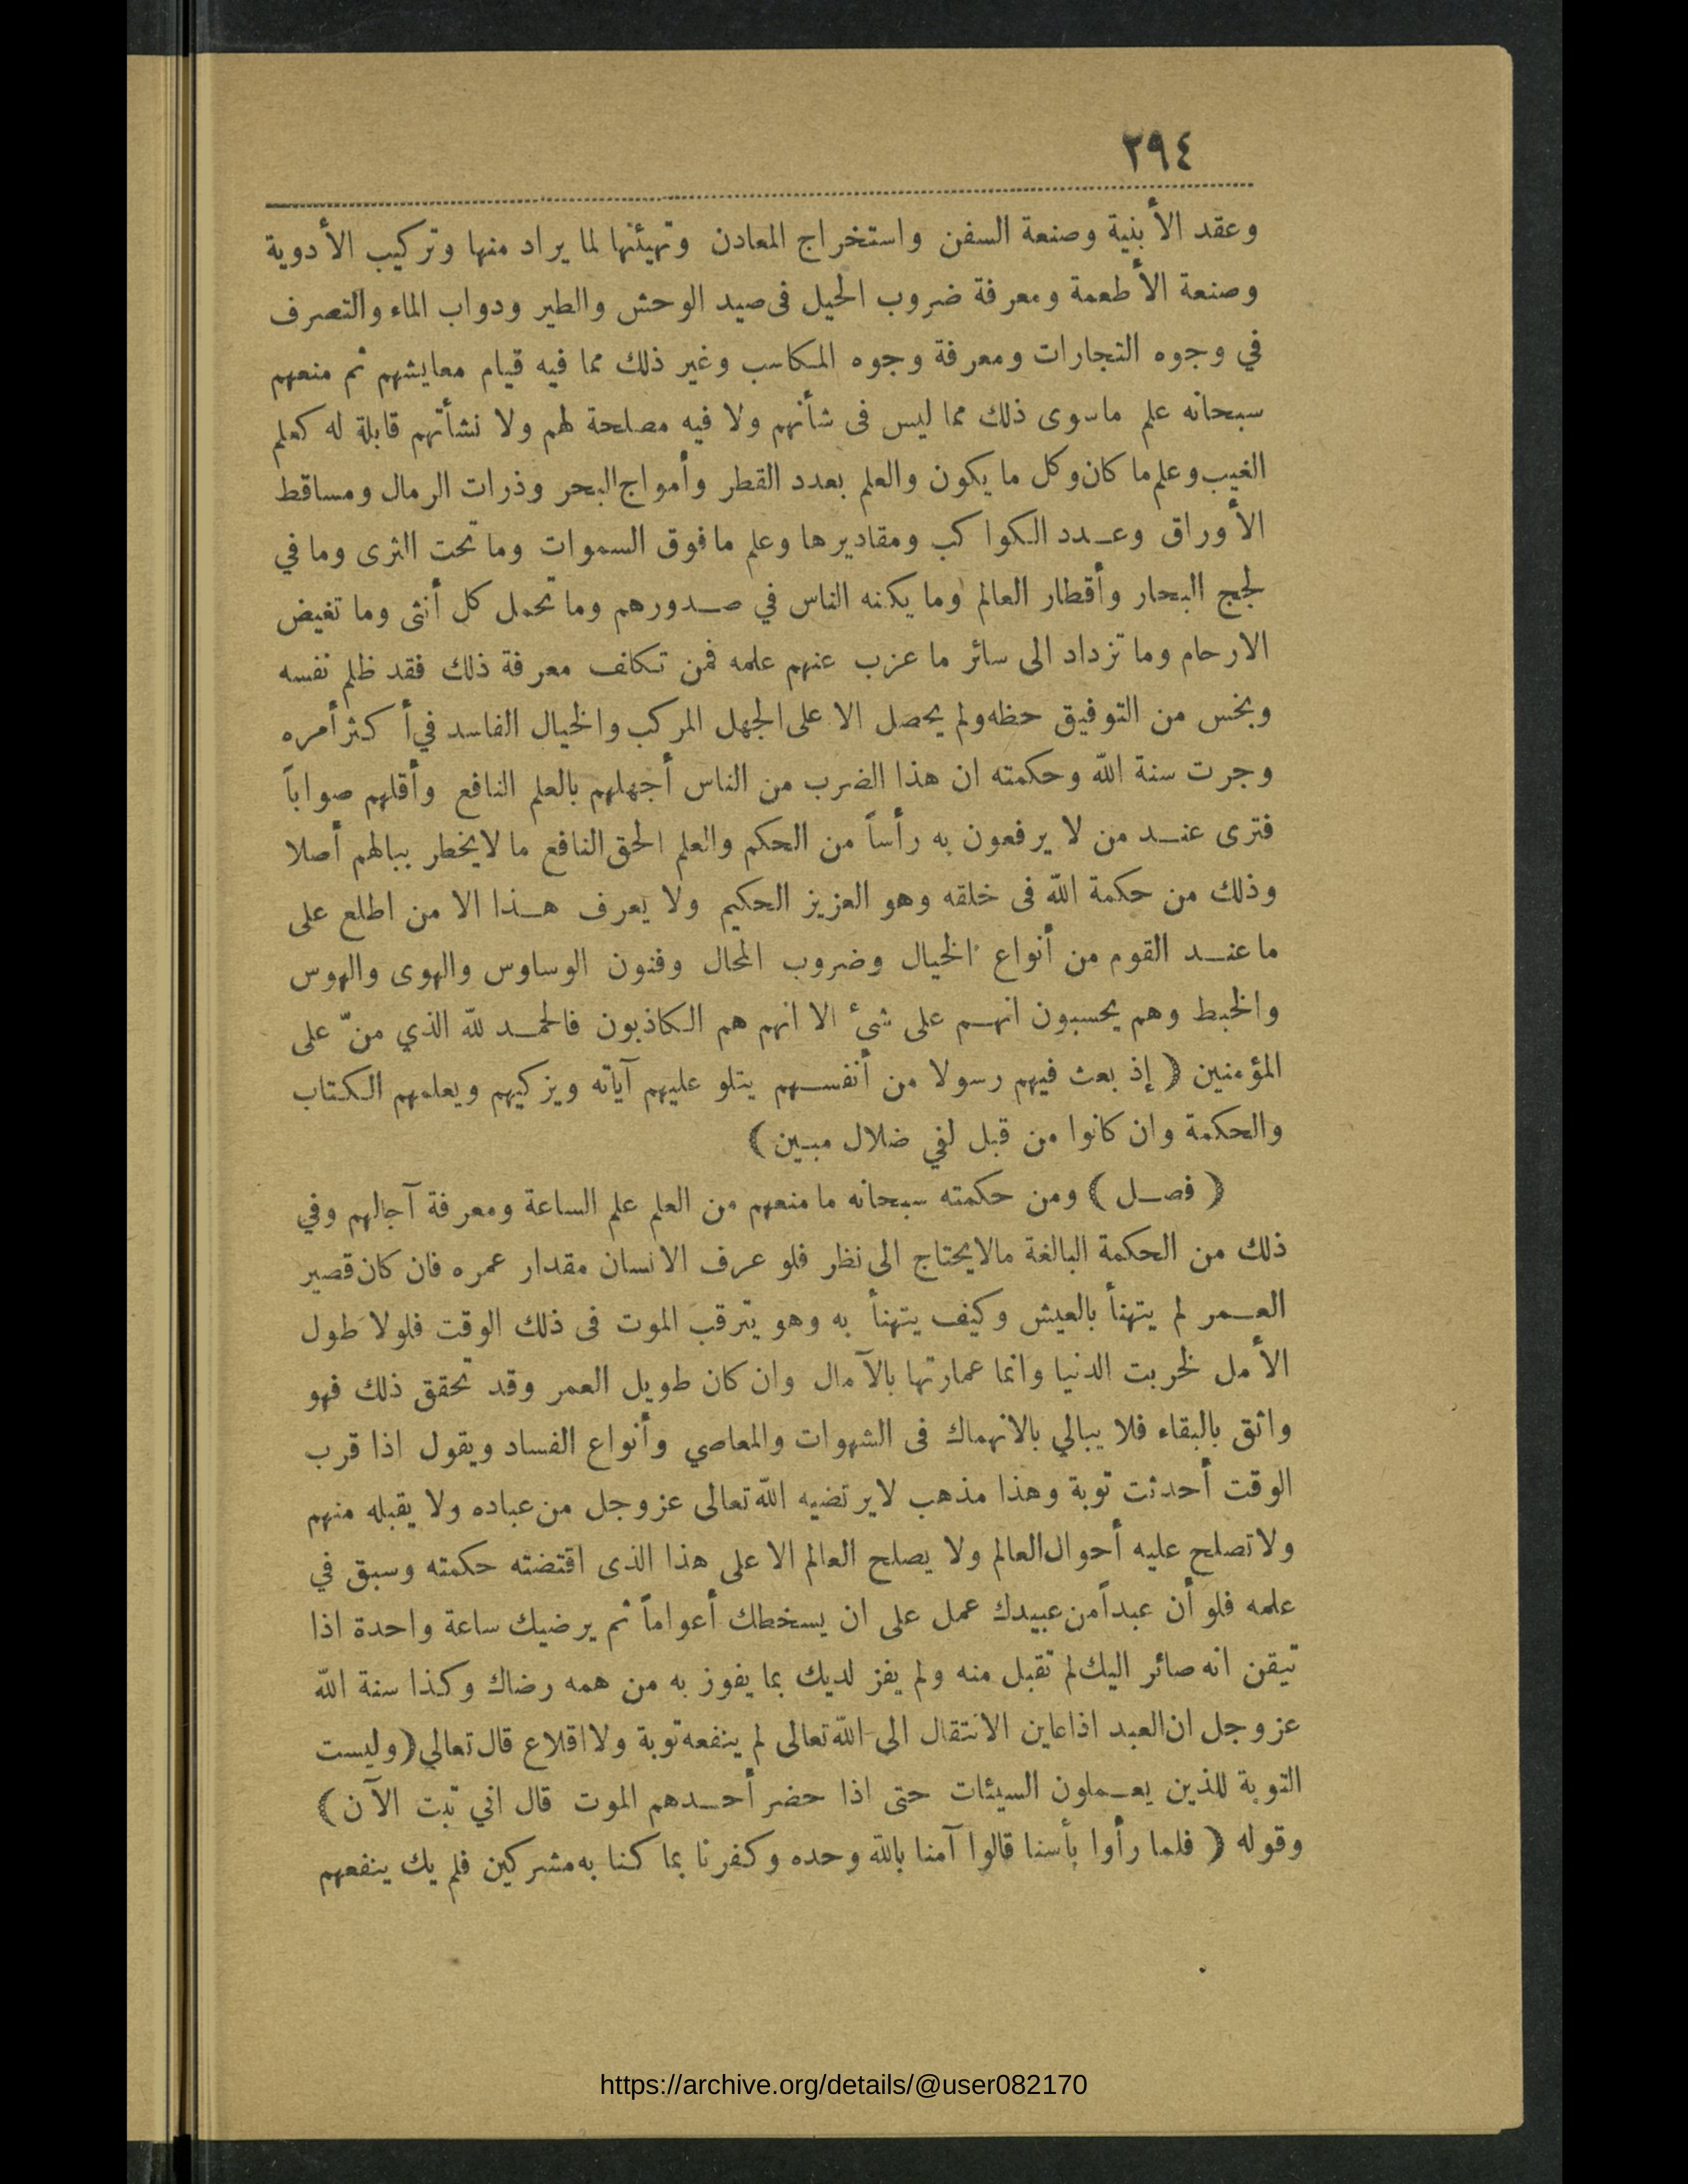 ٢٩٤
وعقد الأبنية وصنعة السفن واستخراج المعادن وتهيئتها لما يراد منها وتركيب الأدوية
وصنعة الأطعمة ومعرفة ضروب الحيل فى صيد الوحش والطير ودواب الماء والتصرف
في وجوه التجارات ومعرفة وجوه المكاسب وغير ذلك مما فيه قيام معايشهم ثم منعهم
سبحانه علم ماسوى ذلك مما ليس فى شأنهم ولا فيه مصلحة لهم ولا نشأتهم قابلة له كعلم
الغيب وعلم ما كان وكل ما يكون والعلم بعدد القطر وأمواج البحر وذرات الرمال ومساقط
الأوراق وعـدد الكواكب ومقاديرها وعلم مافوق السموات وما تحت الثرى وما في
لجج البحار وأقطار العالم وما يكنه الناس في صـدورهم وما تحمل كل أنثى وما تغيض
الارحام وما تزداد الى سائر ما عزب عنهم علمه فمن تكلف معرفة ذلك فقد ظلم نفسه
وبخس من التوفيق حظه ولم يحصل الا على الجهل المركب والخيال الفاسد في أكثر أمره
وجرت سنة الله وحكمته ان هذا الضرب من الناس أجهلهم بالعلم النافع وأقلهم صواباً
فترى عنـد من لا يرفعون به رأساً من الحكم والعلم الحق النافع ما لايخطر ببالهم أصلا
وذلك من حكمة الله فى خلقه وهو العزيز الحكيم ولا يعرف هـذا الا من اطلع على
ما عنـد القوم من أنواع الخيال وضروب المحال وفنون الوساوس والهوى والهوس
والخبط وهم يحسبون انهـم على شئ الا انهم هم الكاذبون فالحمـد لله الذي منّ على
المؤمنين ( إذ بعث فيهم رسولا من أنفسـهم يتلو عليهم آياته ويزكيهم ويعلمهم الكتاب
والحكمة وان كانوا من قبل لفي ضلال مبين )
( فصـل ) ومن حكمته سبحانه ما منعهم من العلم علم الساعة ومعرفة آجالهم وفي
ذلك من الحكمة البالغة مالايحتاج الى نظر فلو عرف الانسان مقدار عمره فان كان قصير
العـمر لم يتهنأ بالعيش وكيف يتهنأ به وهو يترقب الموت فى ذلك الوقت فلولا طول
الأمل لخربت الدنيا وانما عمارتها بالآمال وان كان طويل العمر وقد تحقق ذلك فهو
واثق بالبقاء فلا يبالي بالانهماك فى الشهوات والمعاصي وأنواع الفساد ويقول اذا قرب
الوقت أحدثت توبة وهذا مذهب لايرتضيه الله تعالى عز وجل من عباده ولا يقبله منهم
ولاتصلح عليه أحوال العالم ولا يصلح العالم الا على هذا الذى اقتضته حكمته وسبق في
علمه فلو أن عبداً من عبيدك عمل على ان يسخطك أعواماً ثم يرضيك ساعة واحدة اذا
تيقن انه صائر اليك لم تقبل منه ولم يفز لديك بما يفوز به من همه رضاك وكذا سنة الله
عز وجل ان العبد اذا عاين الانتقال الى الله تعالى لم ينفعه توبة ولا اقلاع قال تعالي ( وليست
التوبة للذين يعـملون السيئات حتى اذا حضر أحـدهم الموت قال اني تبت الآن )
وقوله ( فلما رأوا بأسنا قالوا آمنا بالله وحده وكفرنا بما كنا به مشركين فلم يك ينفعهم
https://archive.org/details/@user082170